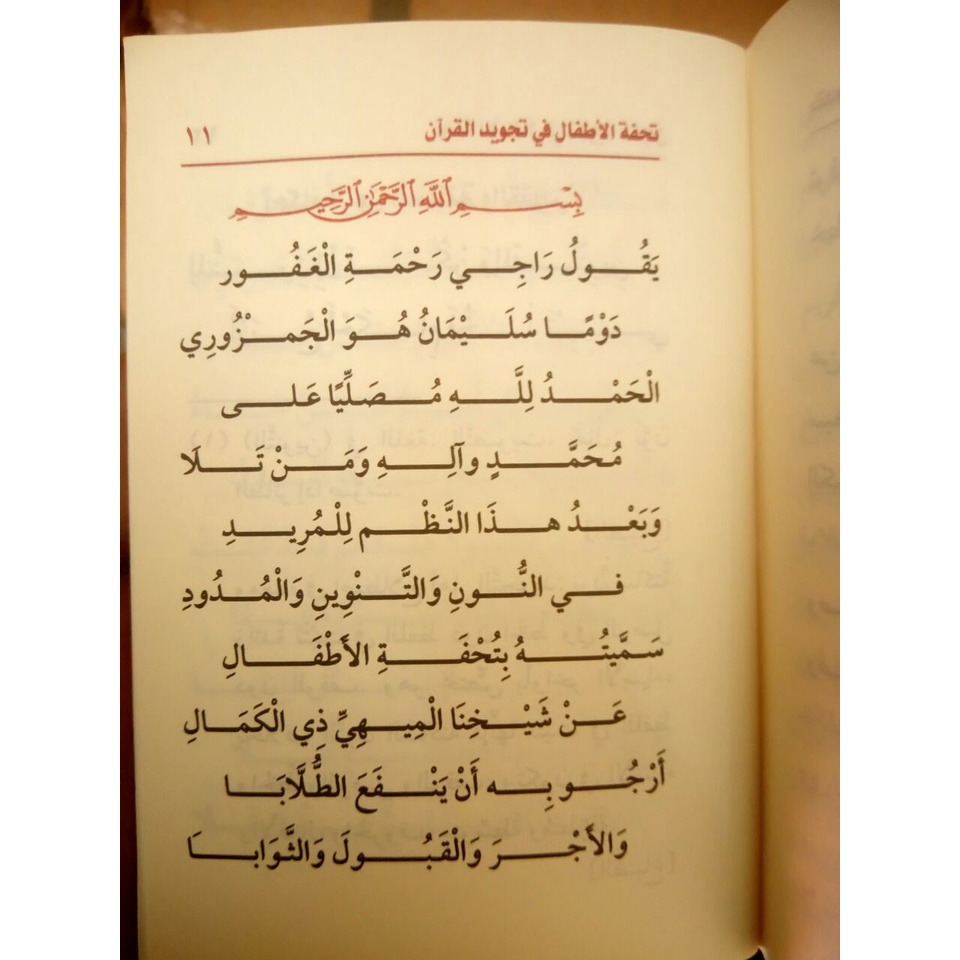 تحفة الأطفال في تجويد القرآن ١١
بِسْمِ اللَّهِ الرَّحْمَنِ الرَّحِيمِ
يَقُولُ رَاجِي رَحْمَةِ الْغَفُور
دَوْمًا سُلَيْمَانُ هُوَ الْجَمْزُورِي
الْحَمْدُ لِلَّهِ مُصَلِّيًا عَلَى
مُحَمَّدٍ وآلِهِ وَمَنْ تَلَا
وَبَعْدُ هذَا النَّظْم لِلْمُرِيدِ
في النُّونِ وَالتَّنْوِينِ وَالْمُدُودِ
سَمَّيتُهُ بِتُحْفَةِ الأَطْفَالِ
عَنْ شَيْخِنَا الْمِيهِيِّ ذِي الْكَمَالِ
أَرْجُو بِه أَنْ يَنْفَعَ الطُّلَّابَا
وَالأَجْرَ وَالْقَبُولَ وَالثَّوَابا